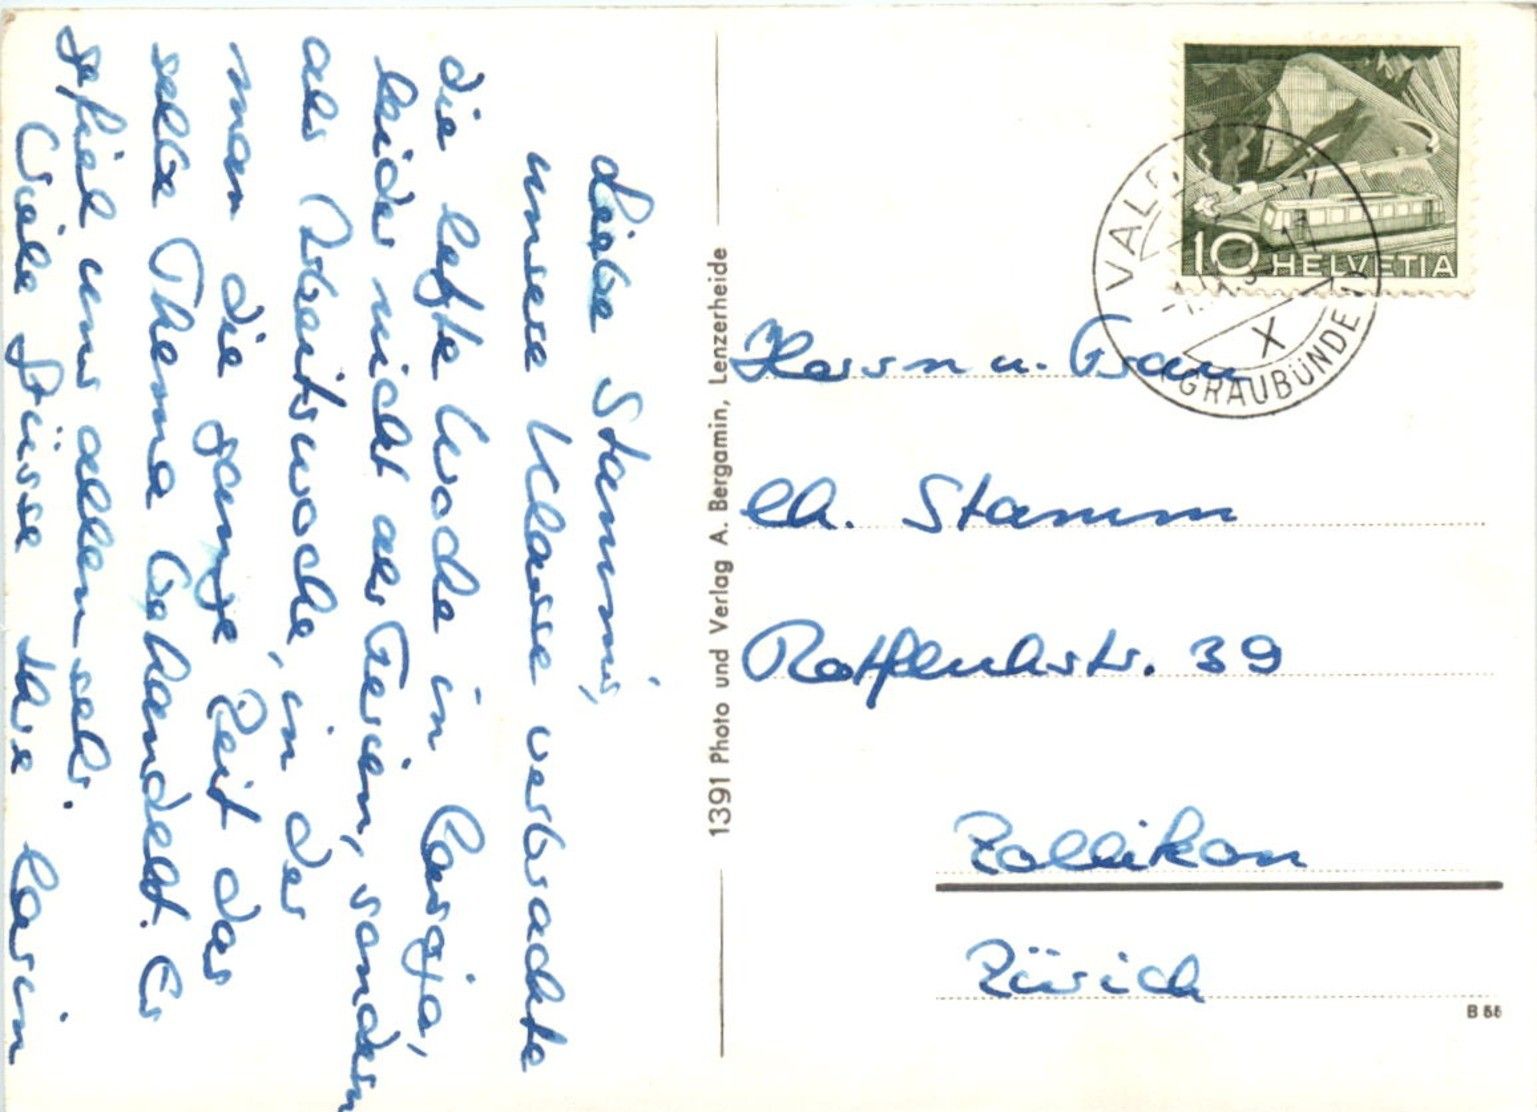 Liebe Stammis,
unsere Klasse verbrachte
die letzte Woche in
leider nicht als Ferien, sondern
als Arbeitswoche, in der
man die ganze Zeit das
selbe Thema behandelt. Es
gefiel uns allen sehr.
Viele Grüsse Ihre Karin
1391 Photo und Verlag A. Bergamin, Lenzerheide
10 HELVETIA
X
GRAUBÜNDEN
Herrn u. Frau
Ch. Stamm
Rotfluhstr. 39
Zollikon
Zürich